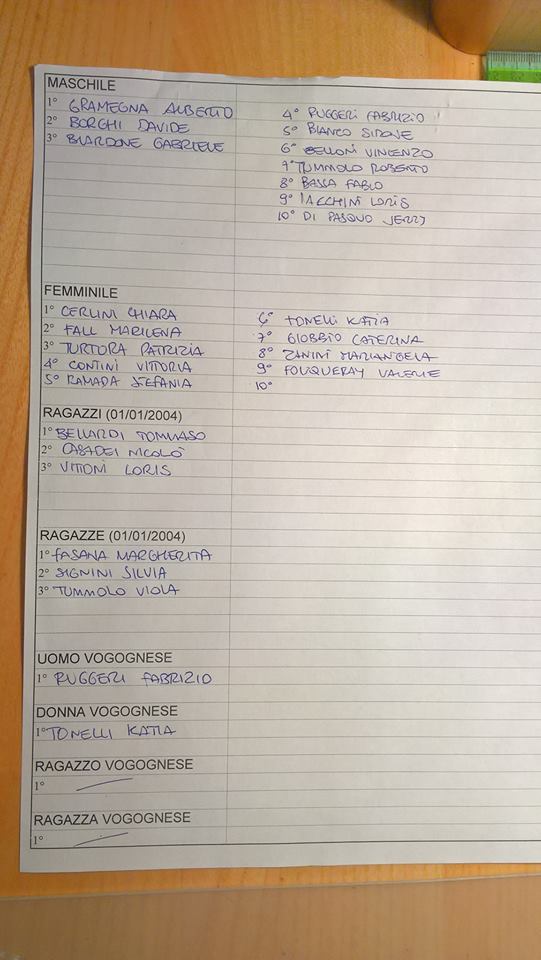 MASCHILE
1° GRAMEGNA ALBERTO
2° BORGHI DAVIDE
3° BIARDONE GABRIELE
4° RUGGERI FABRIZIO
5° BIANCO SIMONE
6° BELLONI VINCENZO
7° TUMMOLO ROBERTO
8° BASSA FABIO
9° IACCHINI LORIS
10° DI PASQUO JERRY
FEMMINILE
1° CERLINI CHIARA
2° FALL MARILENA
3° TURTORA PATRIZIA
4° CONTINI VITTORIA
5° RAMADA STEFANIA
6° TONELLI KATIA
7° GIOBBIO CATERINA
8° ZANINI MARIANGELA
9° FOUQUERAY VALERIE
10°
RAGAZZI (01/01/2004)
1° BELLARDI TOMMASO
2° CASADEI NICOLÒ
3° VITTONI LORIS
RAGAZZE (01/01/2004)
1° FASANA MARGHERITA
2° SIGNINI SILVIA
3° TUMMOLO VIOLA
UOMO VOGOGNESE
1° RUGGERI FABRIZIO
DONNA VOGOGNESE
1° TONELLI KATIA
RAGAZZO VOGOGNESE
1°
RAGAZZA VOGOGNESE
1°